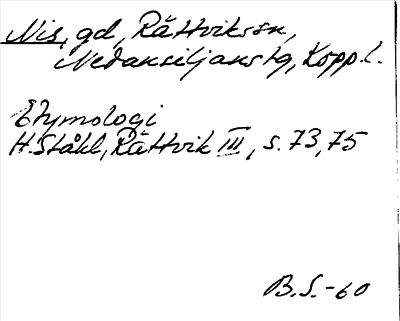 Nis, gd, Rättvikssn,
Nedansiljanstg, Kopp.l.
Etymologi
H. Ståhl, Rättvik III, s. 73, 75
B.S.-60